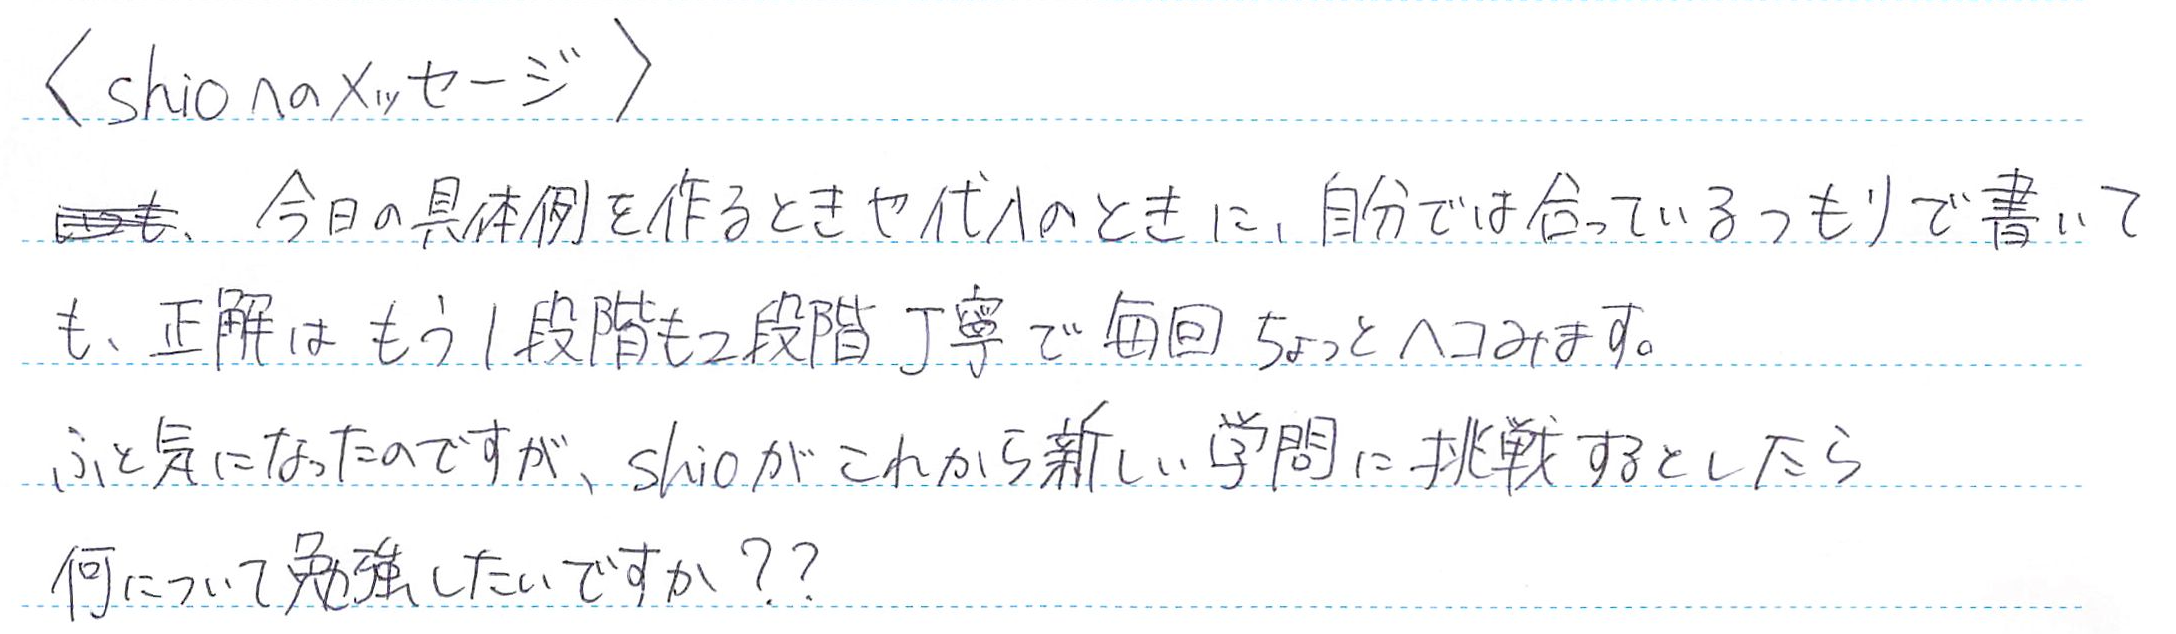 〈shioへのメッセージ〉
今日の具体例を作るときや代入のときに、自分では合っているつもりで書いて
も、正解はもう1段階も2段階丁寧で毎回ちょっとヘコみます。
ふと気になったのですが、shioがこれから新しい学問に挑戦するとしたら
何について勉強したいですか??